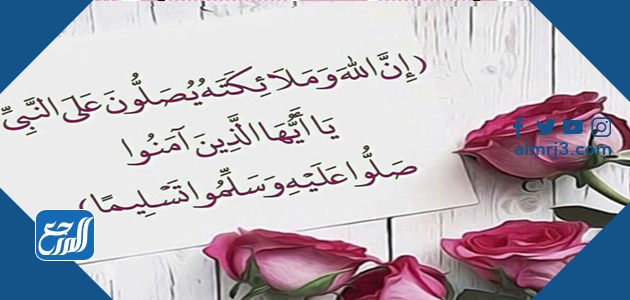 (إِنَّ اللهَ وَمَلَائِكَتَهُ يُصَلُّونَ عَلَى النَّبِيِّ
يَا أَيُّهَا الَّذِينَ آمَنُوا
صَلُّوا عَلَيْهِ وَسَلِّمُوا تَسْلِيمًا)
almrj3.com
المرجع